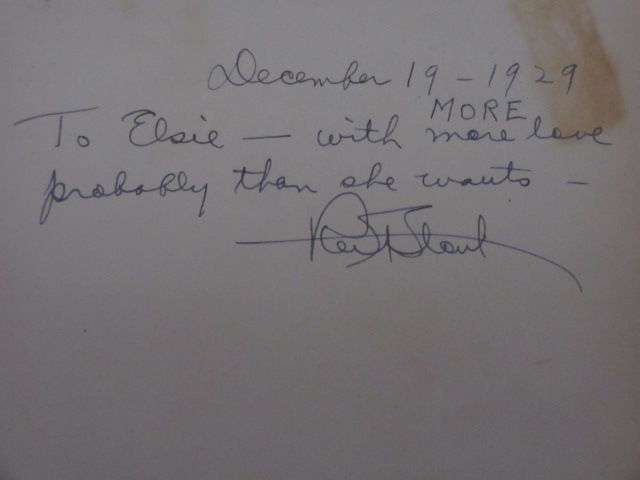 December 19 - 1929
MORE
To Elsie — with more love
probably than she wants —
Rex Stout